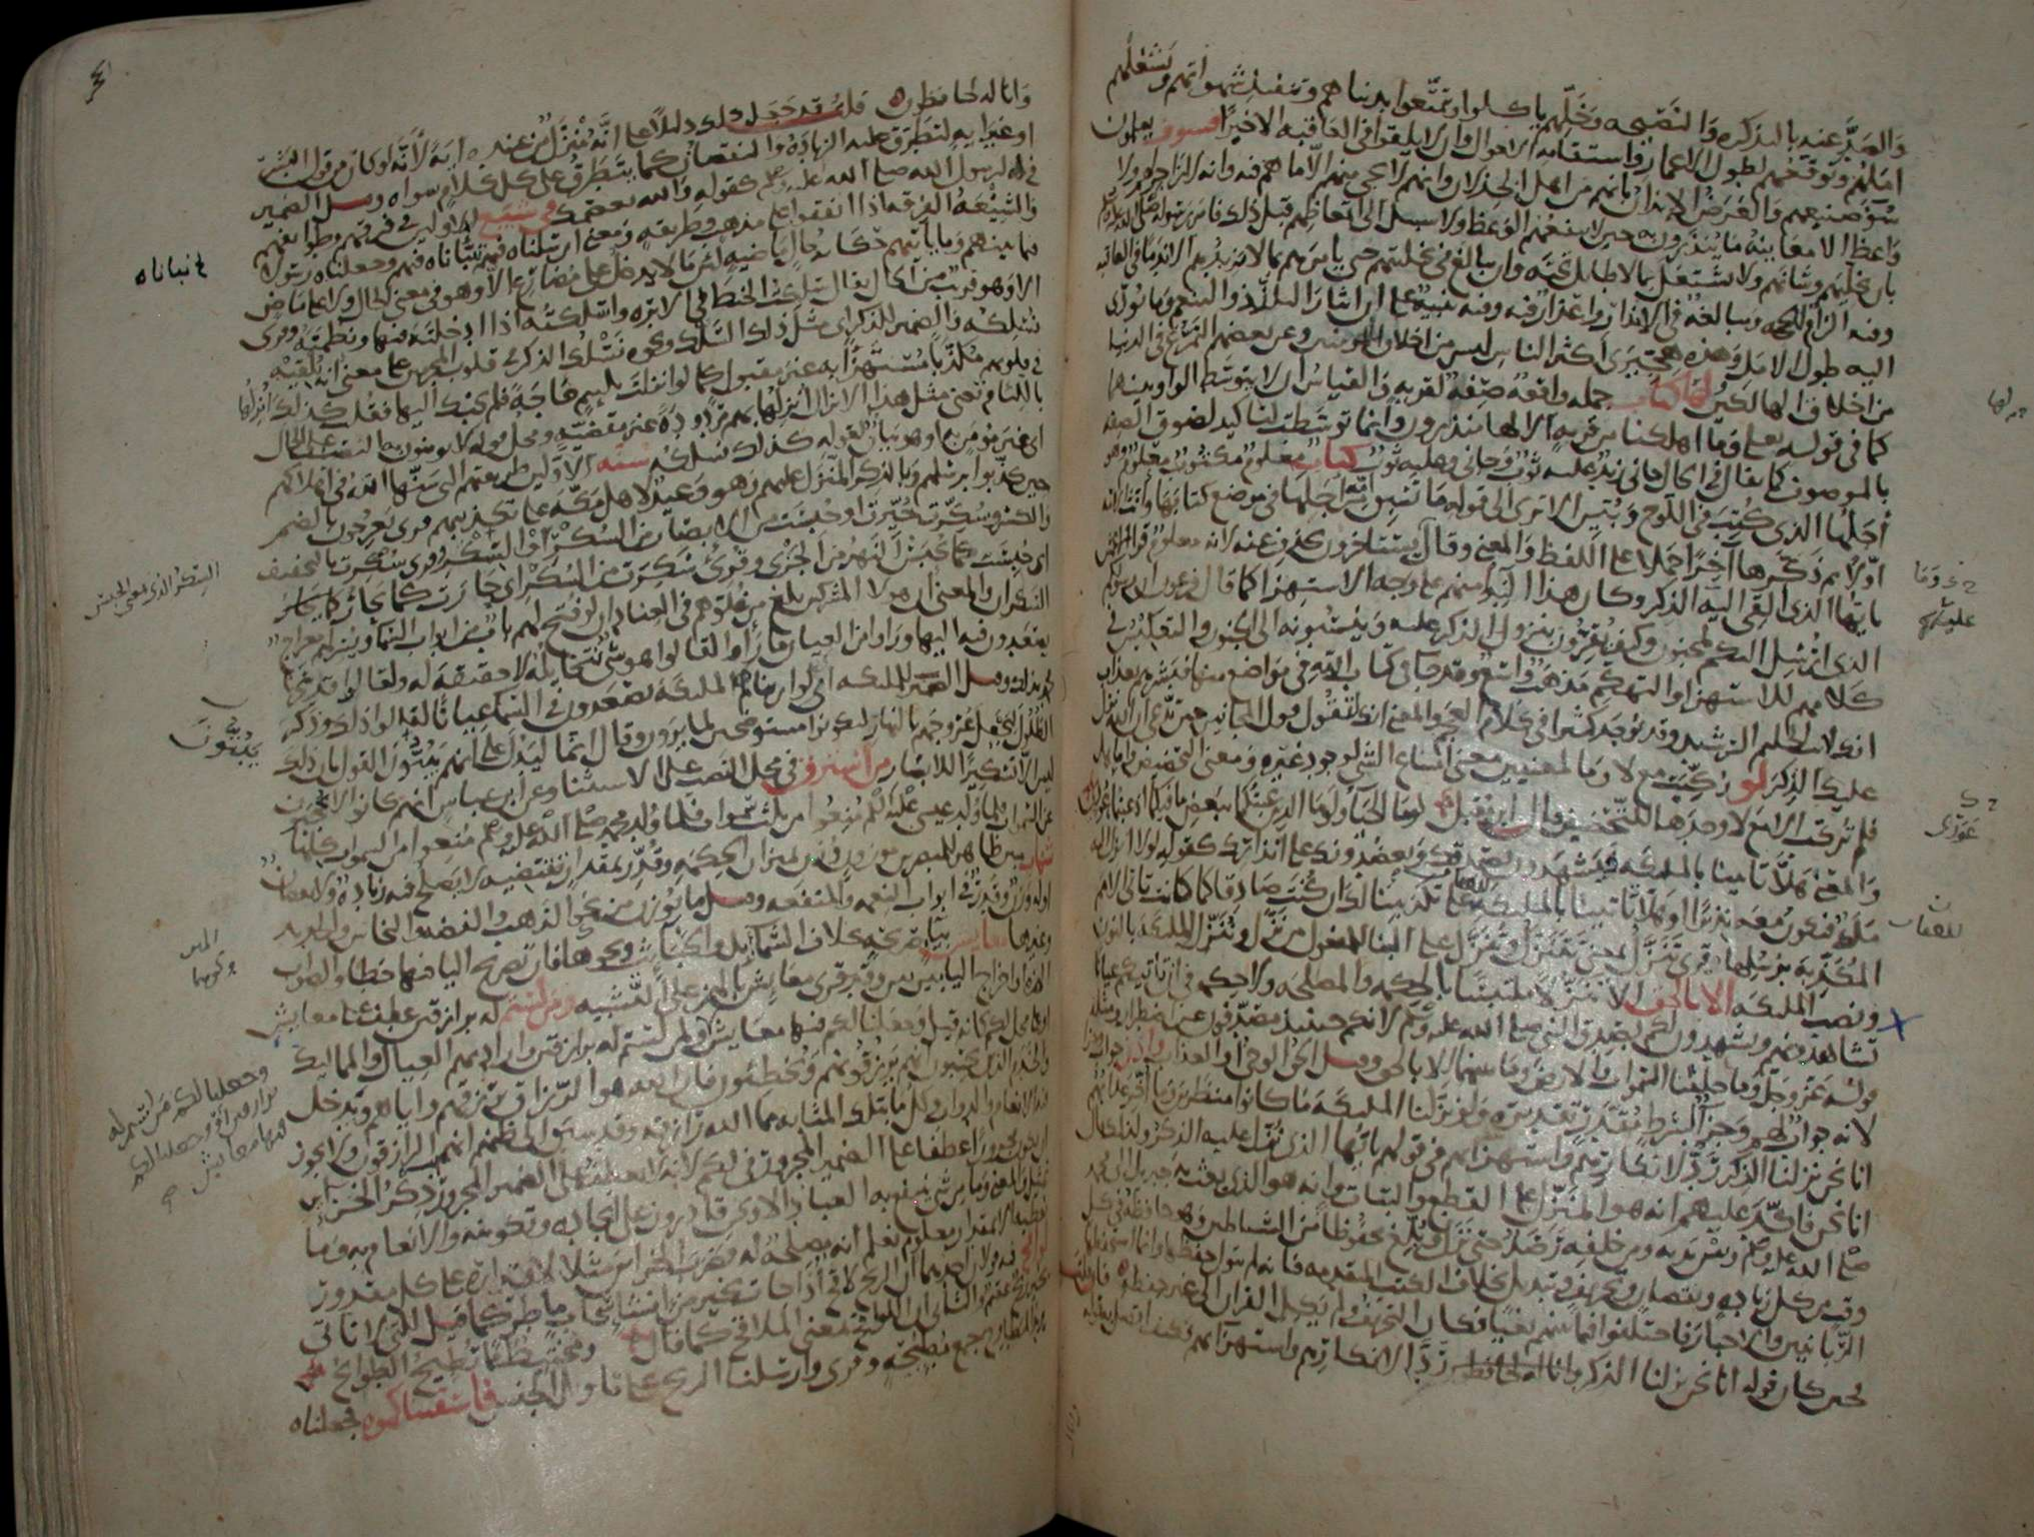 والصد عنه بالتذكرة والنصيحة وخلهم ياكلوا ويتمتعوا بدنياهم وتنفيذ شهواتهم ويشغلهم
املهم وتوقعهم لطول الاعمار واستقامة الاحوال وان لا يلقوا في العاقبة الا خيرا فسوف يعلمون
سوء صنيعهم والغرض الايذان بانهم من اهل الخذلان وانهم لا يجي منهم الا ما هم فيه وانه لا زاجر لهم ولا
واعظ الا معاينة ما ينذرون به حين لا ينفعهم الوعظ ولا سبيل الى اتعاظهم قبل ذلك فامر رسوله صلى الله عليه وسلم
بان يخليهم وشانهم ولا يشتغل بما لا طايل تحته وان يبالغ في تخليتهم حتى يامرهم بما لا يزيدهم الا ندما في العاقبة
وفيه الزام للحجة ومبالغة في الانذار واعذار فيه وفيه تنبيه على ان ايثار التلذذ والتنعم وما يودي
اليه طول الامل وهذه هجيرى اكثر الناس ليس من اخلاق المومنين وعن بعضهم التمرغ في الدنيا
من اخلاق الهالكين لها كتاب جملة واقعة صفة لقرية والقياس ان لا يتوسط الواو بينهما
كما في قوله تعلى وما اهلكنا من قرية الا لها منذرون وانما توسطت لتاكيد لصوق الصفة
بالموصوف كما يقال في الحال جاني زيد عليه ثوب وجاني وعليه ثوب كتاب معلوم مكتوب معلوم وهو
اجلها الذي كتب في اللوح وبين الا ترى الى قوله ما تسبق من امة اجلها في موضع كتابها وانث الامة
اولا ثم ذكرها آخرا حملا على اللفظ والمعنى وقال يستاخرون بحذف عنه لانه معلوم قرا الاعمش
يايها الذي القي اليه الذكر وكان هذا النداء منهم على وجه الاستهزا كما قال فرعون ان رسولكم
الذي ارسل اليكم لمجنون وكيف يقرون بنزول الذكر عليه وينسبونه الى الجنون والتعكيس في
كلامهم للاستهزا والتهكم مذهب واسع وقد جا في كتاب الله في مواضع منها فبشرهم بعذاب
انك لانت الحليم الرشيد وقد يوجد كثيرا في كلام العجم والمعنى انك لتقول قول المجانين حين تدعي ان الله نزل
عليك الذكر لو ركبت مع لا وما لمعنيين معنى امتناع الشي لوجود غيره ومعنى التحضيض واما هل
فلم تركب الا مع لا وحدها للتحضيض قال ابن مقبل لوما الحيا ولوما الدين عبتكما ببعض ما فيكما اذ عبتما عوري
والمعنى هلا تاتينا بالملايكة يشهدون بصدقك ويعضدونك على انذارك كقوله لولا انزل اليه
ملك فيكون معه نذيرا او هلا تاتينا بالملايكة للعقاب على تكذيبنا لك ان كنت صادقا كما كانت تاتي الامم
المكذبة برسلها قرى تنزل بمعنى تتنزل وتنزل على البنا للمفعول من نزل وننزل الملايكة بالنون
ونصب الملايكة الا بالحق الا تنزلا ملتبسا بالحكمة والمصلحة ولا حكمة في ان تاتيكم عيانا
تشاهدونهم ويشهدون لكم بصدق النبي صلى الله عليه وسلم لانكم حينيذ مصدقون عن اضطرار ومثله
قوله عز وجل وما خلقنا السموات والارض وما بينهما الا بالحق وقيل الحق الوحي او العذاب واذن جواب وجزا
لانه جواب لهم وجزا لشرط مقدر تقديره ولو نزلنا الملايكة ما كانوا منظرين وما اخر عذابهم
انا نحن نزلنا الذكر رد لانكارهم واستهزايهم في قولهم يايها الذي نزل عليه الذكر ولذلك قال
انا نحن فاكد عليهم انه هو المنزل على القطع والبتات وانه هو الذي بعث به جبريل الى محمد
صلى الله عليه وسلم وبين يديه ومن خلفه رصد حتى نزل وبلغ محفوظا من الشياطين وهو حافظه في كل
وقت من كل زيادة ونقصان وتحريف وتبديل بخلاف الكتب المتقدمة فانه لم يتول حفظها وانما استحفظها
الربانيين والاحبار فاختلفوا فيما بينهم بغيا فكان التحريف ولم يكل القران الى غير حفظه فان قلت
فحين كان قوله انا نحن نزلنا الذكر ردا لانكارهم واستهزايهم فكيف اتصل به قوله
لها
وما
عليكم
عوري
للعقاب
وانا له لحافظون قلت قد جعل ذلك دليلا على انه منزل من عنده اية لانه لو كان من قول البشر
او غير اية لتطرق عليه الزيادة والنقصان كما يتطرق على كل كلام سواه وقيل الضمير
في له لرسول الله صلى الله عليه وسلم كقوله والله يعصمك في شيع الاولين في فرقهم وطوايفهم
والشيعة الفرقة اذا اتفقوا على مذهب وطريقة ومعنى ارسلناه فيهم نباناه فيهم وجعلناه رسولا
فيما بينهم وما ياتيهم حكاية حال ماضية لان ما لا يدخل على مضارع الا وهو في معنى الحال ولا على ماض
الا وهو قريب من الحال يقال سلكت الخيط في الابرة واسلكته اذا ادخلته فيها ونظمته وقرى
نسلكه والضمير للذكر اي مثل ذلك السلك ونحوه نسلك الذكر في قلوب المجرمين على معنى انه يلقيه
في قلوبهم مكذبا مستهزا به غير مقبول كما لو انزلت بلييم حاجة فلم يجبك اليها فقلت كذلك انزلها
باللئام تعني مثل هذا الانزال انزلها بهم مردودة غير مقضية ومحل قوله لا يومنون به النصب على الحال
اي غير مومن به او هو بيان لقوله كذلك نسلكه سنة الاولين طريقتهم التي سنها الله في اهلاكهم
حين كذبوا برسلهم وبالذكر المنزل عليهم وهو وعيد لاهل مكة على تكذيبهم قرى يعرجون بالضم
والكسر وسكرت حيرت او حبست من الابصار من السكر او السكر وقرى سكرت بالتخفيف
اي حبست كما يحبس النهر من الجري وقرئ سكرت من السكر اي حارت كما يحار
السكران والمعنى ان هولا المشركين بلغ من غلوهم في العناد ان لو فتح لهم باب من ابواب السما ويسر لهم معراج
يصعدون فيه اليها وراوا من العيان ما راوا لقالوا هو شي نتخايله لا حقيقة له ولقالوا قد سحرنا
محمد بذلك وقيل الضمير للملايكة اي لو اريناهم الملايكة يصعدون في السما عيانا لقالوا ذلك وذكر
الظلول ليجعل عروجهم بالنهار ليكونوا مستوضحين لما يرون وقال انما ليدل على انهم يبتون القول بان ذلك
ليس الا تسكيرا للابصار من استرق في محل النصب على الاستثنا وعن ابن عباس انهم كانوا لا يحجبون
عن السموات فلما ولد عيسى عليه السلم منعوا من ثلث سموات فلما ولد محمد صلى الله عليه وسلم منعوا من السموات كلها
شهاب مبين ظاهر للمبصرين موزون وزن بميزان الحكمة وقدر بمقدار تقتضيه لا يصلح فيه زيادة ولا نقصان
او له وزن وقدر في ابواب النعمة والمنفعة وقيل ما يوزن من نحو الذهب والفضة والنحاس والحديد
وغيرها معايش بيا صريحة بخلاف الشمايل والخبايث ونحوهما فان تصريح اليا فيها خطا والصواب
الهمزة او اخراج اليا بين بين وقد قرى معايش بالهمز على التشبيه ومن لستم له برازقين عطف على معايش
او على محل لكم كانه قيل وجعلنا لكم فيها معايش ولمن لستم له برازقين واراد بهم العيال والمماليك
والخدم الذين يحسبون انهم يرزقونهم ويخطئون فان الله هو الرزاق يرزقهم واياهم ويدخل
فيه الانعام والدواب وكل ما بتلك المثابة مما الله رازقه وقد سبق الى ظنهم انهم الرازقون ولا يجوز
ان يكون مجرورا عطفا على الضمير المجرور في لكم لانه لا يعطف على الضمير المجرور ذكر الخزاين
تمثيل والمعنى وما من شي ينتفع به العباد الا ونحن قادرون على ايجاده وتكوينه والانعام به وما
نعطيه الا بمقدار معلوم نعلم انه مصلحة له فضرب الخزاين مثلا لاقتداره على كل مقدور
لواقح فيه قولان احدهما ان الريح لاقح اذا جات بخير من انشا سحاب ماطر كما قيل للتي لا تاتي
بخير ريح عقيم والثاني ان اللواقح بمعنى الملاقح كما قال ومختبط مما تطيح الطوايح
يريد المطاوح جمع مطيحة وقرى وارسلنا الريح على تاويل الجنس فاسقيناكموه فجعلناه
نباناه
السكر الذي بمعنى الحبس
يبتون
وجعلنا لكم من لستم له
برازقين او وجعلنا لكم
فيها معايش